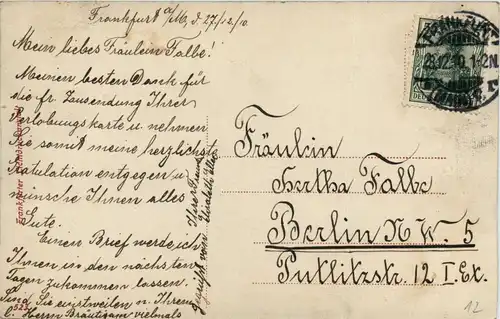 Frankfurt a/M, d. 27/12.10
Mein liebes Fräulein Falbe!
Meinen besten Dank für
die fr. Zusendung Ihrer
Verlobungskarte u nehmen
Sie somit meine herzlichste
Gratulation entgegen u
wünsche Ihnen alles
Gute.
Einen Brief werde ich
Ihnen in den nächsten
Tagen zukommen lassen.
Sind Sie einstweilen u. Ihrem
Herrn Bräutigam vielmals
gegrüßt von Ihrer Freundin
Elisabeth
Fräulein
Hertha Falbe
Berlin N.W. 5
Putlitzstr. 12 I. Et.
28.12.10. 1-2N.
523
12